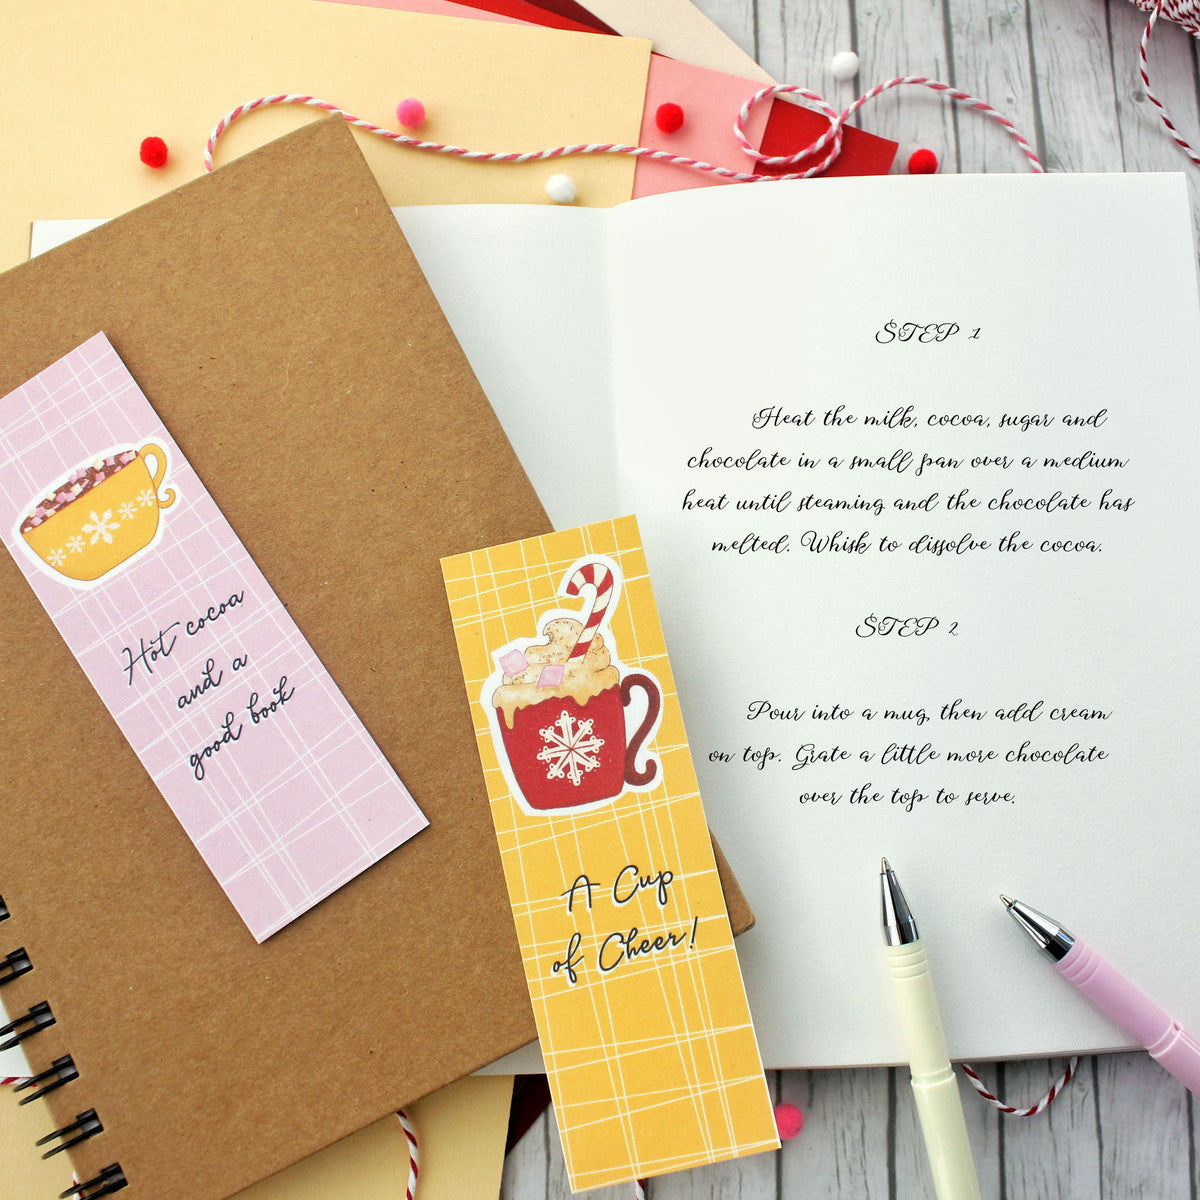 Hot cocoa
and a
good book
A Cup
of Cheer!
STEP 1
Heat the milk, cocoa, sugar and
chocolate in a small pan over a medium
heat until steaming and the chocolate has
melted. Whisk to dissolve the cocoa.
STEP 2
Pour into a mug, then add cream
on top. Grate a little more chocolate
over the top to serve.